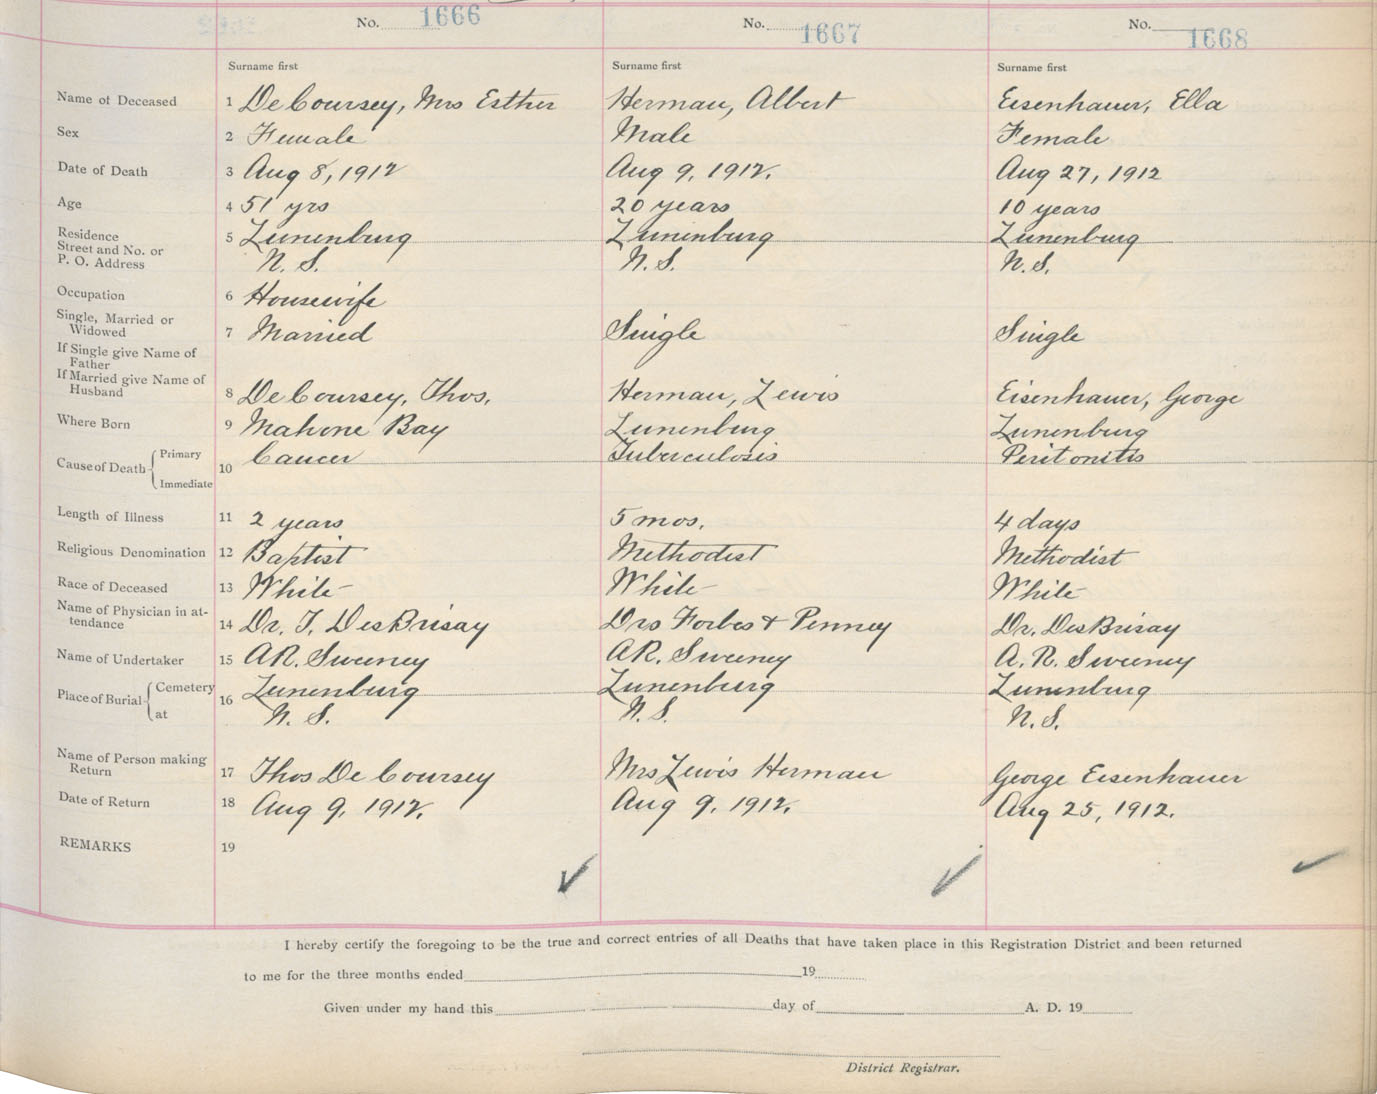 No. 1666 No. 1667 No. 1668
Surname first Surname first Surname first
Name of Deceased 1 DeCoursey, Mrs Esther Herman, Albert Eisenhauer, Ella
Sex 2 Female Male Female
Date of Death 3 Aug 8, 1912 Aug 9, 1912. Aug 27, 1912
Age 4 51 yrs 20 years 10 years
Residence
Street and No. or 5 Lunenburg Lunenburg Lunenburg
P. O. Address N. S. N. S. N. S.
Occupation 6 Housewife
Single, Married or
Widowed 7 Married Single Single
If Single give Name of
Father
If Married give Name of
Husband 8 DeCoursey, Thos, Herman, Lewis Eisenhauer, George
Where Born 9 Mahone Bay Lunenburg Lunenburg
Cause of Death Primary 10 Cancer Tuberculosis Peritonitis
Immediate
Length of Illness 11 2 years 5 mos. 4 days
Religious Denomination 12 Baptist Methodist Methodist
Race of Deceased 13 White White White
Name of Physician in at-
tendance 14 Dr. T. DesBrisay Drs Forbes + Penney Dr. DesBrisay
Name of Undertaker 15 AR. Sweeney AR. Sweeney A. R. Sweeney
Place of Burial Cemetery 16 Lunenburg Lunenburg Lunenburg
at N. S. N. S. N. S.
Name of Person making
Return 17 Thos DeCoursey Mrs Lewis Herman George Eisenhauer
Date of Return 18 Aug 9, 1912. Aug 9, 1912. Aug 25, 1912.
REMARKS 19
I hereby certify the foregoing to be the true and correct entries of all Deaths that have taken place in this Registration District and been returned
to me for the three months ended 19
Given under my hand this day of A. D. 19
District Registrar.